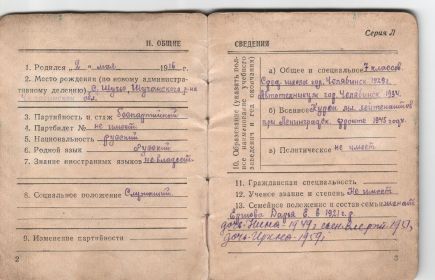 II. ОБЩИЕ
1. Родился „2“ мая 1916 г.
2. Место рождения (по новому администра-
тивному делению) с. Шучье, Шучанского р-на
обл.
3. Партийность и стаж беспартийный
4. Партбилет № не имеет
5. Национальность русский
6. Родной язык русский
7. Знание иностранных языков не владеет
8. Социальное положение Служащий.
9. Изменение партийности
2
Серия Л
СВЕДЕНИЯ
10. Образование (указать пол-
ное наименование учебного
заведения и год окончания)
а) Общее и специальное 7 классов.
школы гор. Челябинск 1929г.
Автотехникум гор. Челябинск 1934.
б) Военное Курсы мл. лейтенантов
при Ленинградск. фронте 1943 года.
в) Политическое не имеет
11. Гражданская специальность
12. Ученое звание и степень Не имеет
13. Семейное положение и состав семьи женат
Дарья Е. в 1921 г.р.
дочь Нина 1949г. сын
дочь 1959г.
3